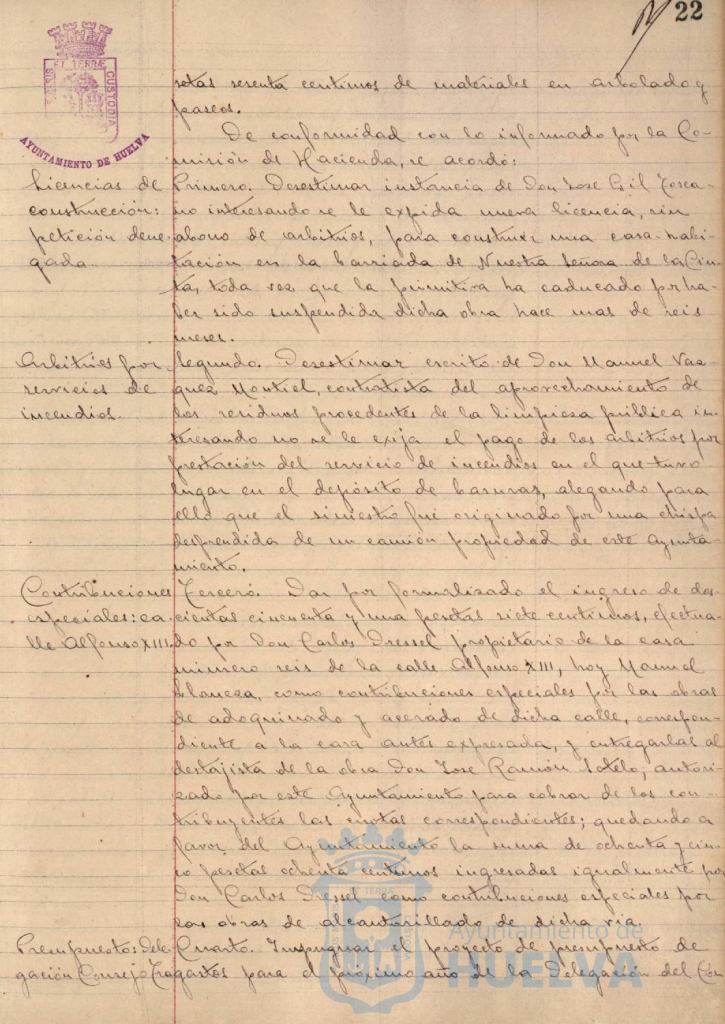 22
PORTUS MARIS ET TERRÆ CUSTODIA
AYUNTAMIENTO DE HUELVA
setas sesenta centimos de materiales en arbolado y
paseos.
De conformidad con lo informado por la Co-
misión de Hacienda, se acordó:
Licencias de
construcción:
petición dene-
gada.
Primero. Desestimar instancia de Don Jose Gil Tosca-
no interesando se le expida nueva licencia, sin
abono de arbitrios, para construir una casa-habi-
tación en la barriada de Nuestra Señora de la Cin-
ta, toda vez que la primitiva ha caducado por ha-
ber sido suspendida dicha obra hace mas de seis
meses.
Arbitrios por
servicios de
incendios.
Segundo. Desestimar escrito de Don Manuel Vaz-
quez Montiel, contratista del aprovechamiento de
los residuos procedentes de la limpieza pública in-
teresando no se le exija el pago de los arbitrios por
prestación del servicio de incendios en el que tuvo
lugar en el depósito de basuras, alegando para
ello que el siniestro fué originado por una chispa
desprendida de un camión propiedad de este Ayunta-
miento.
Contribuciones
especiales: ca-
lle Alfonso XIII.
Tercero. Dar por formalizado el ingreso de dos-
cientas cincuenta y una pesetas siete centimos, efectua-
do por Don Carlos Dressel propietario de la casa
número seis de la calle Alfonso XIII, hoy Manuel
como contribuciones especiales por las obras
de adoquinado y acerado de dicha calle, correspon-
diente a la casa antes expresada, y entregarlas al
destajista de la obra Don Jose Ramón Sotelo, autori-
zado por este Ayuntamiento para cobrar de los con-
tribuyentes las cuotas correspondientes; quedando a
favor del Ayuntamiento la suma de ochenta y cin-
co pesetas ochenta centimos ingresadas igualmente por
Don Carlos Dressel como contribuciones especiales por
las obras de alcantarillado de dicha via.
Presupuestos: Dele-
gación Consejo Tra-
Cuarto. Impugnar el proyecto de presupuesto de
gastos para el próximo año de la Delegación del Con
Ayuntamiento de
HUELVA